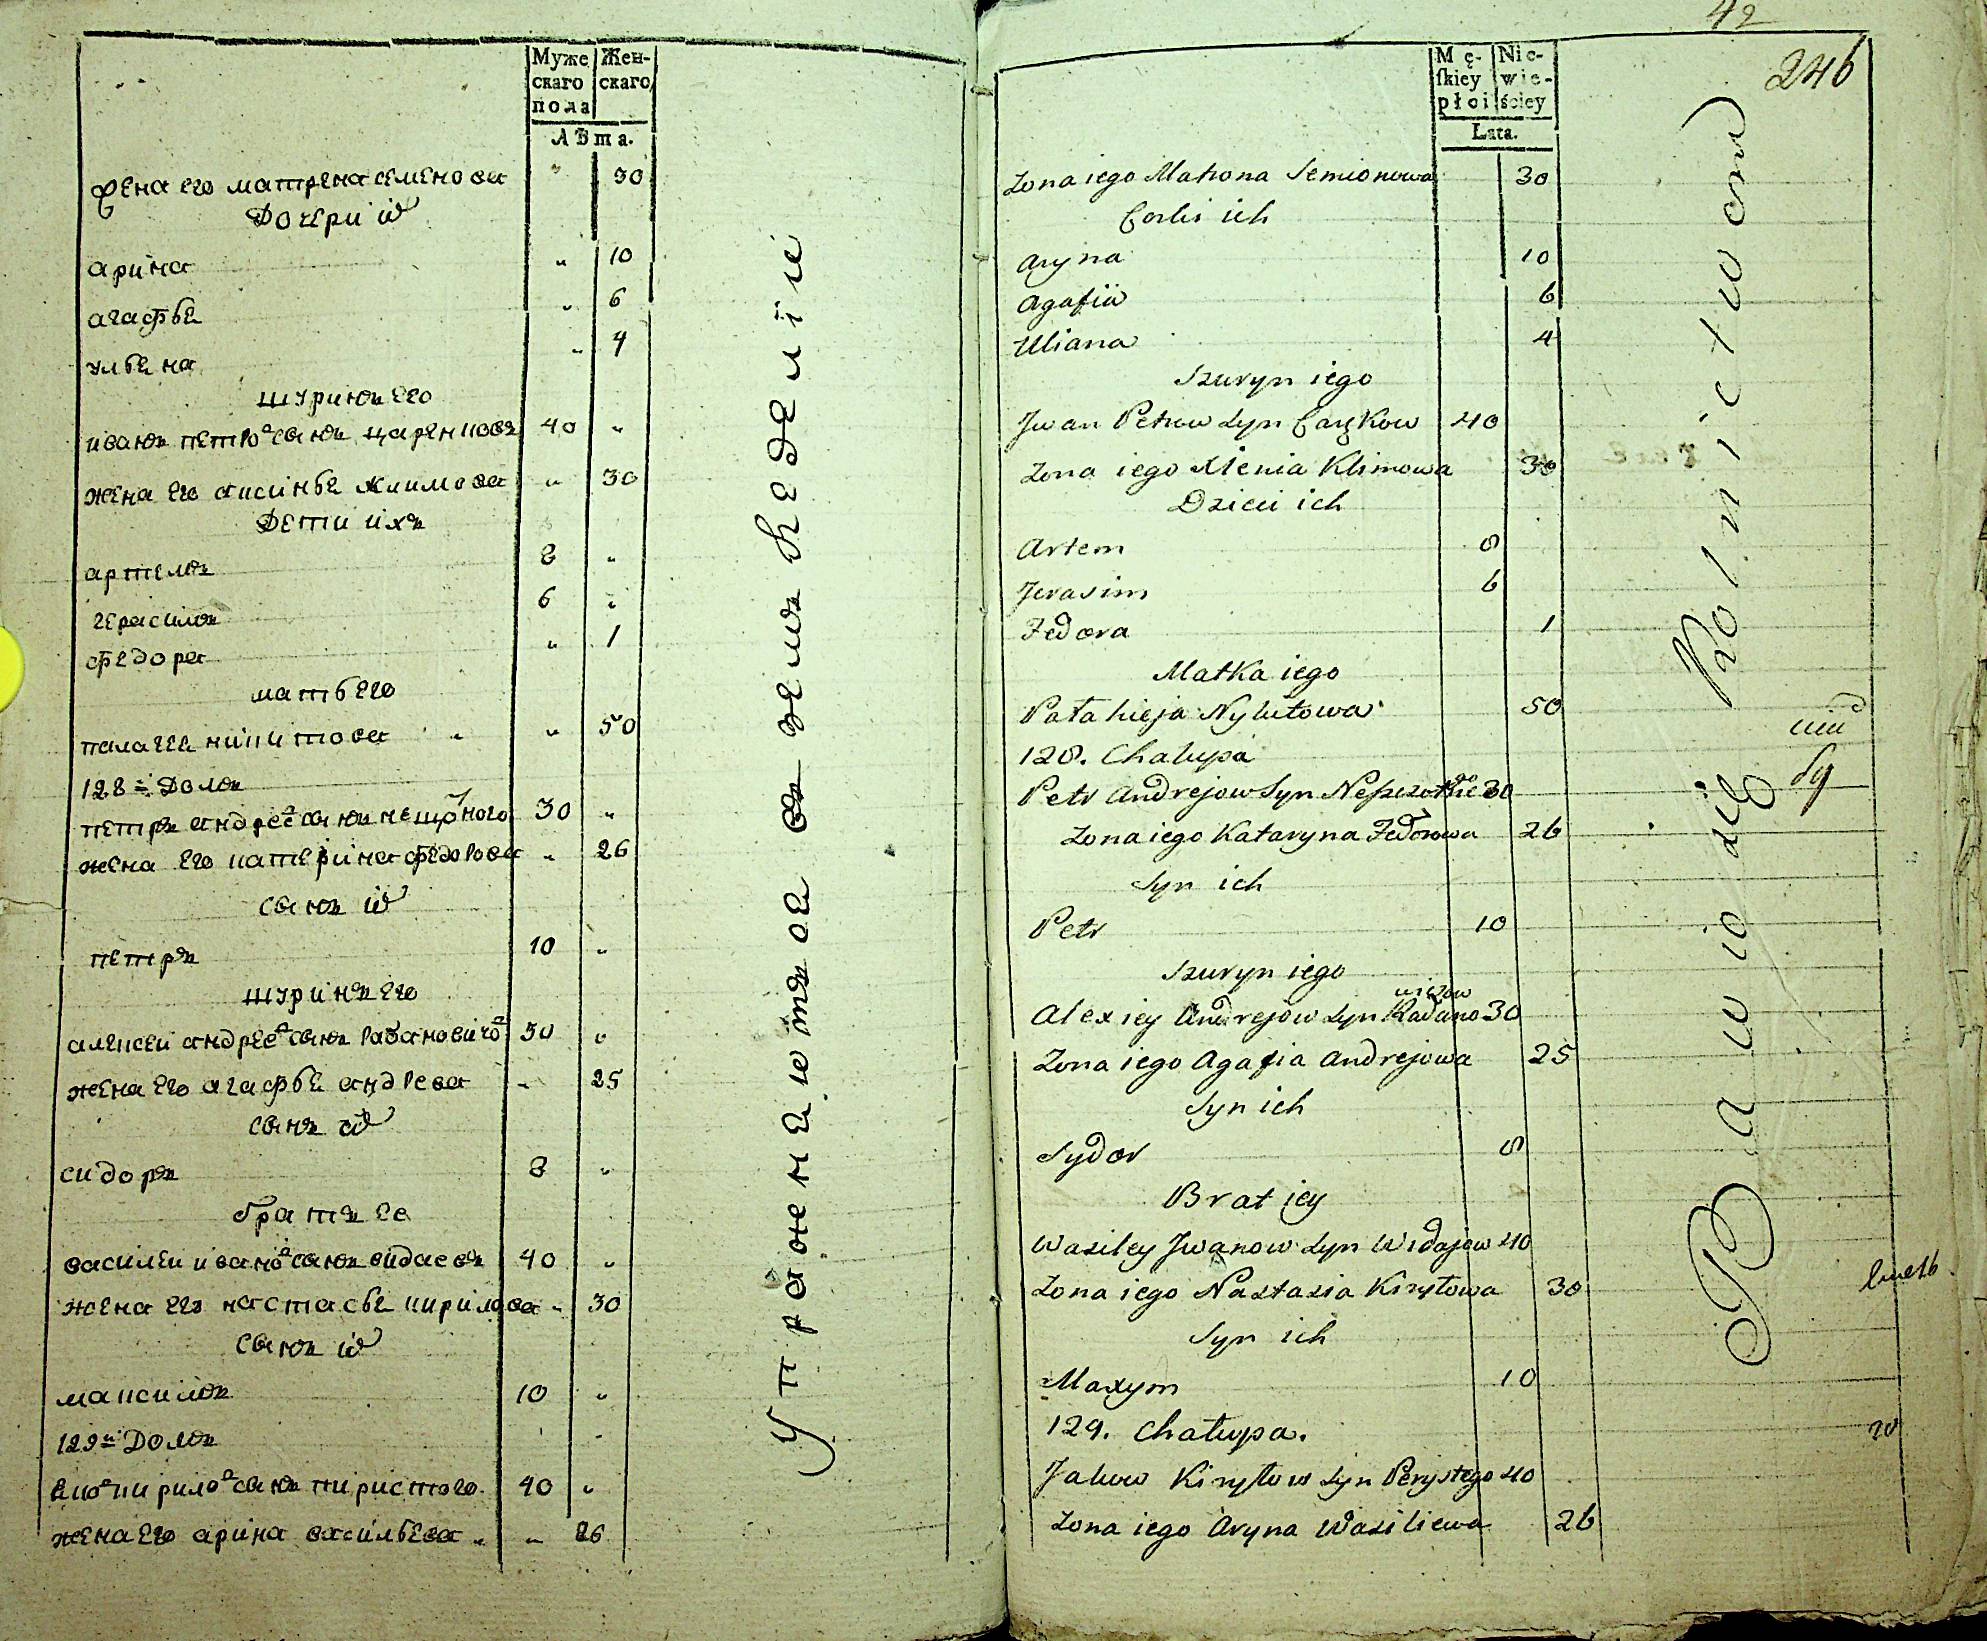 Муже
скаго
пола
Жен-
скаго
Лѣта.
жена его матрена семенова " 30
дочери их
арина " 10
агафья " 6
ульяна " 4
шуринъ его
иванъ петровъ сынъ царенковъ 40 "
жена его аксинья климова " 30
дети ихъ
артемъ 8 "
герасимъ 6 "
федора " 1
мать его
палагея никитова " 50
128й домъ
петръ андреевъ сынъ нещотного 30 "
жена его катерина федорова " 26
сынъ их
петръ 10 "
шуринъ его
алексей андреевъ сынъ радановичовъ 30 "
жена его агафья андрева " 25
сынъ их
сидоръ 8 "
братъ ее
василей ивановъ сынъ видаевъ 40 "
жена его настасья кирилова " 30
сынъ их
максимъ 10 "
129й домъ
яковъ кириловъ сынъ пиристого 40 "
жена его арина васильева " 26
Упражняются въ земледелiи
42
246
Mę-
skiey
płci
Nie-
wie-
ściey
Lata.
Zona iego Matrona Semionowa 30
Corki ich
Aryna 10
Agafiia 6
Uliana 4
Szuryn iego
Jwan Petrow Syn Carękow 40
Zona iego Xienia Klimowa 30
Dzieci ich
Artem 8
Jerasim 6
Fedora 1
Matka iego
Pałahieja Nykitowa 50
128. Chałupa
Petr Andrejow Syn Neszczotnego 30
Zona iego Kataryna Fedorowa 26
Syn ich
Petr 10
Szuryn iego
Alexiey Andrejow Syn Radanowiczow 30
Zona iego Agafia Andrejowa 25
Syn ich
Sydor 8
Brat iey
Wasiley Jwanow Syn Widajow 40
Zona iego Nastasia Kiryłowa 30
Syn ich
Maxym 10
129. Chałupa.
Jakow Kiryłow Syn Perystego 40
Zona iego Aryna Wasiliewa 26
Bawią się Rolnictwem